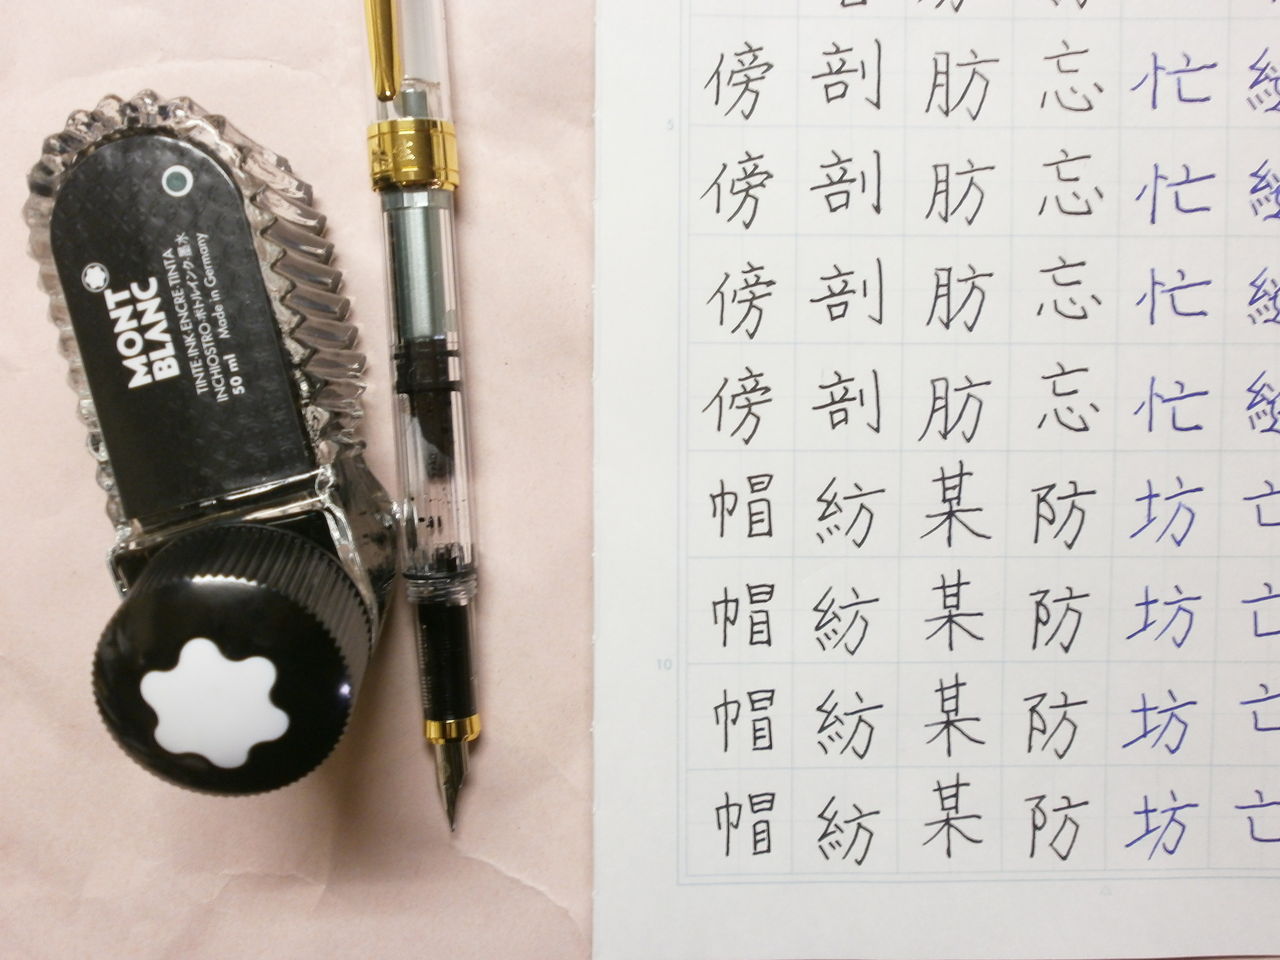 MONT
BLANC
TINTE·INK·ENCRE·TINTA
INCHIOSTRO·ボトルインク·墨水
50 ml Made in Germany
5
10
傍 剖 肪 忘 忙
傍 剖 肪 忘 忙
傍 剖 肪 忘 忙
傍 剖 肪 忘 忙
帽 紡 某 防 坊 亡
帽 紡 某 防 坊 亡
帽 紡 某 防 坊 亡
帽 紡 某 防 坊 亡